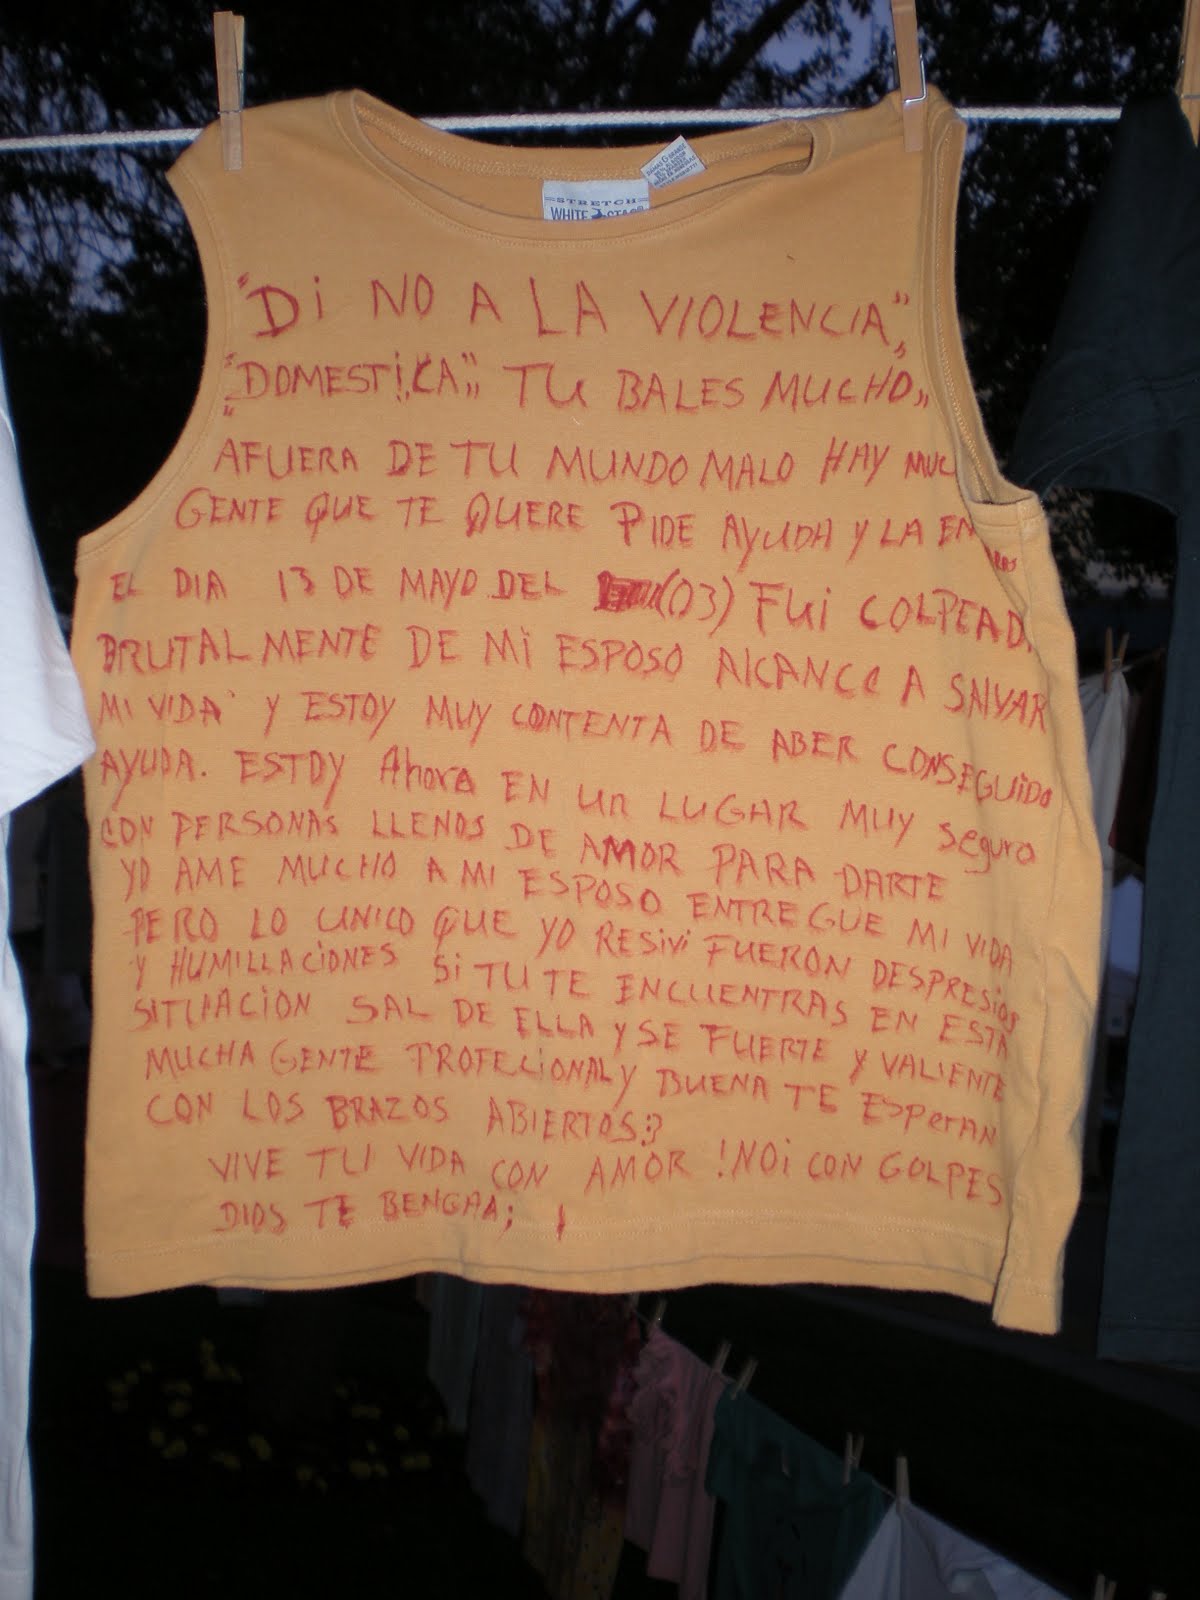 STRETCH
WHITE STAG
"Di NO A LA VIOLENCIA,"
"DOMESTiCA," TU BALES MUCHO,,
AFUERA DE TU MUNDO MALO HAY MUC
GENTE QUE TE QUERE PIDE AYUDA Y LA EN
EL DIA 13 DE MAYO DEL (03) FUi COLPEAD
BRUTALMENTE DE Mi ESPOSO AlCANCe A SAlVAR
Mi VIDA Y ESTOY MUY CONTENTA DE ABER CONSEGUIDO
AYUDA. ESTOY Ahora EN Un LUGAR MUY Seguro
CON PERSONAS LLENOS DE AMOR PARA DARTE
YO AME MUCHO A MI ESPOSO ENTREGUE MI VIDA
PERO LO UNICO QUE YO RESiVi FUERON DESPRESiOS
Y HUMILLACIONES Si TU TE ENCUENTRAS EN ESTA
SITUACION SAL DE ELLA Y SE FUERTE Y VALIENTE
MUCHA GENTE PROFECIONAL Y BUENA TE ESperAN
CON LOS BRAZOS ABIERTOS
VIVE TU VIDA CON AMOR ! NO¡ CON GOLPES
DIOS TE BENGAA;